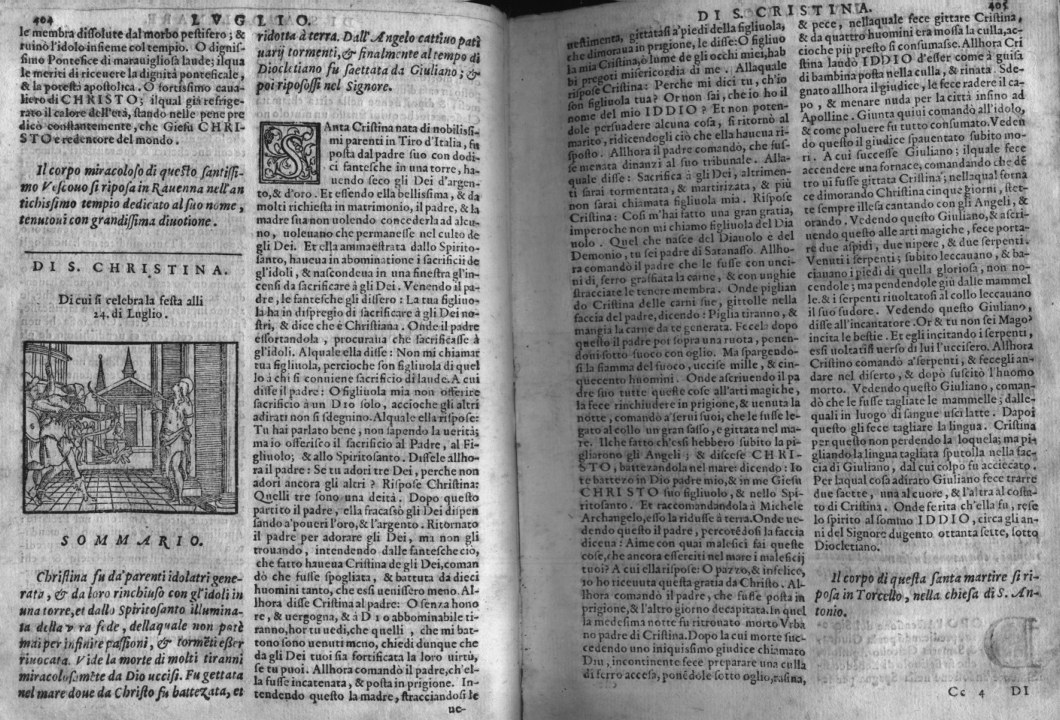 404
LVGLIO.
le membra dissolute dal morbo pestifero; &
ruinò l'idolo insieme col tempio. O dignis-
simo Pontefice di marauigliosa laude; ilqua
le meriti di riceuere la dignità ponteficale,
& la potestà apostolica. O fortissimo caua-
liero di CHRISTO; ilqual già refrige-
rato il calore dell'età, stando nelle pene pre
dicò constantemente, che Giesu CHRI-
STO e redentore del mondo.
Il corpo miracoloso di questo santissi-
mo Vescouo si riposa in Rauenna nell'an
tichissimo tempio dedicato al suo nome,
tenutoui con grandissima diuotione.
DI S. CHRISTINA.
Di cui si celebra la festa alli
24. di Luglio.
SOMMARIO.
Christina fu da' parenti idolatri gene-
rata, & da loro rinchiuso con gl'idoli in
una torre, et dallo Spiritosanto illumina-
ta della vera fede, dellaquale non potè
mai per infinite passioni, & tormẽti esser
riuocata. Vide la morte di molti tiranni
miracolosamẽte da Dio uccisi. Fu gettata
nel mare doue da Christo fu battezata, et
ridotta à terra. Dall'Angelo cattiuo patì
uarij tormenti, & finalmente al tempo di
Diocletiano fu saettata da Giuliano; &
poi riposossi nel Signore.
SAnta Cristina nata di nobilissi-
mi parenti in Tiro d'Italia, fu
posta dal padre suo con dodi-
ci fantesche in una torre, ha-
uendo seco gli Dei d'argen-
to, & d'oro. Et essendo ella bellissima, & da
molti richiesta in matrimonio, il padre, & la
madre sua non uolendo concederla ad alcu-
no, uoleuano che permanesse nel culto de
gli Dei. Et ella ammaestrata dallo Spirito-
santo, haueua in abominatione i sacrificii de
gl'idoli, & nascondeua in una finestra gl'in-
censi da sacrificare à gli Dei. Venendo il pa-
dre, le fantesche gli dissero: La tua figliuo-
la ha in dispregio di sacrificare à gli Dei no-
stri, & dice che è Christiana. Onde il padre
essortandola, procuraua che sacrificasse à
gl'idoli. Alquale ella disse: Non mi chiamar
tua figliuola, percioche son figliuola di quel
lo à chi si conuiene sacrificio di laude. A cui
disse il padre: O figliuola mia non offerire
sacrificio à un Dio solo, accioche gli altri
adirati non si sdegnino. Alquale ella rispose:
Tu hai parlato bene, non sapendo la uerità;
ma io offerisco il sacrificio al Padre, al Fi-
gliuolo; & allo Spiritosanto. Dissele allho-
ra il padre: Se tu adori tre Dei, perche non
adori ancora gli altri? Rispose Christina:
Quelli tre sono una deità. Dopo questo
partito il padre, ella fracassò gli Dei dispen
sando a' poueri l'oro, & l'argento. Ritornato
il padre per adorare gli Dei, ma non gli
trouando, intendendo dalle fantesche ciò,
che fatto haueua Cristina de gli Dei, coman
dò che fusse spogliata, & battuta da dieci
huomini tanto, che essi uenissero meno. Al-
lhora disse Cristina al padre: O senza hono
re, & uergogna, & à Dio abbominabile ti-
ranno, hor tu uedi, che quelli, che mi bat-
tono sono uenuti meno, chiedi dunque che
da gli Dei tuoi sia fortificata la loro uirtù,
se tu puoi. Allhora comandò il padre, ch'el-
la fusse incatenata, & posta in prigione. In-
tendendo questo la madre, stracciandosi le
ue-
DI S. CRISTINA.
405
uestimenta, gittatasi a' piedi della figliuola,
che dimoraua in prigione, le disse: O figliuo
la mia Cristina, ò lume de gli occhi miei, hab
bi pregoti misericordia di me. Allaquale
rispose Cristina: Perche mi dici tu, ch'io
son figliuola tua? Or non sai, che io ho il
nome del mio IDDIO? Et non poten-
dole persuadere alcuna cosa, si ritornò al
marito, ridicendogli ciò che ella haueua ri-
sposto. Allhora il padre comandò, che fus-
se menata dinanzi al suo tribunale. Alla-
quale disse: Sacrifica à gli Dei, altrimen-
ti sarai tormentata, & martirizata, & più
non sarai chiamata figliuola mia. Rispose
Cristina: Così m'hai fatto una gran gratia,
imperoche non mi chiamo figliuola del Dia
uolo. Quel che nasce del Diauolo e del
Demonio, tu sei padre di Satanasso. Allho-
ra comandò il padre che le fusse con unci-
ni di ferro grassiata la carne, & con unghie
stracciate le tenere membra. Onde piglian
do Cristina delle carni sue, gittolle nella
faccia del padre, dicendo: Piglia tiranno, &
mangia la carne da te generata. Fecela dopo
questo il padre poi sopra una ruota, ponen-
doui sotto fuoco con oglio. Ma spargendo-
si la fiamma del fuoco, uccise mille, & cin-
quecento huomini. Onde ascriuendo il pa
dre suo tutte queste cose all'arti magiche,
la fece rinchiudere in prigione, & uenuta la
notte, comandò a' serui suoi, che le fusse le-
gato al collo un gran sasso, e gittata nel ma-
re. Ilche fatto ch'essi hebbero subito la pi-
gliarono gli Angeli; & discese CHRI-
STO, battezandola nel mare: dicendo: Io
te battezo in Dio padre mio, & in me Giesu
CHRISTO suo figliuolo, & nello Spi-
ritosanto. Et raccomandandola à Michele
Archangelo, esso la ridusse à terra. Onde ue-
dendo questo il padre, percotẽdosi la faccia
diceua: Aime con quai malefici fai queste
cose, che ancora esserciti nel mare i maleficij
tuoi? A cui ella rispose: O pazzo, & infelice,
io ho riceuuta questa gratia da Christo. Al-
lhora comandò il padre, che fusse posta in
prigione, & l'altro giorno decapitata. In quel
la medesima notte fu ritrouato morto Vrba
no padre di Cristina. Dopo la cui morte suc-
cedendo uno iniquissimo giudice chiamato
Diu, incontinente fece preparare una culla
di ferro accesa, ponẽdole sotto oglio, rasina,
& pece, nellaquale fece gittare Cristina,
& da quattro huomini era mossa la culla, ac-
cioche più presto si consumasse. Allhora Cri
stina laudò IDDIO d'esser come à guisa
di bambina posta nella culla, & rinata. Sde-
gnato allhora il giudice, le fece radere il ca-
po, & menare nuda per la città insino ad
Apolline. Giunta quiui comandò all'idolo,
& come poluere fu tutto consumato. Veden
do questo il giudice spauentato subito mo-
rì. A cui successe Giuliano; ilquale fece
accendere una fornace, comandando che dẽ
tro ui fusse gittata Cristina; nellaqual forna
ce dimorando Christina cinque giorni, stet-
te sempre illesa cantando con gli Angeli, &
orando. Vedendo questo Giuliano, & ascri-
uendo questo alle arti magiche, fece porta-
re due aspidi, due uipere, & due serpenti.
Venuti i serpenti; subito leccauano, & ba-
ciauano i piedi di quella gloriosa, non no-
cendole; ma pendendole giù dalle mammel
le. & i serpenti riuoltatosi al collo leccauano
il suo sudore. Vedendo questo Giuliano,
disse all'incantatore. Or & tu non sei Mago?
incita le bestie. Et egli incitando i serpenti,
essi uoltatisi uerso di lui l'uccisero. Allhora
Cristino comandò a' serpenti, & fecegli an-
dare nel diserto, & dopò suscitò l'huomo
morto. Vedendo questo Giuliano, coman-
dò che le fusse tagliate le mammelle; dalle-
quali in luogo di sangue uscì latte. Dapoi
questo gli fece tagliare la lingua. Cristina
per questo non perdendo la loquela; ma pi-
gliando la lingua tagliata sputolla nella fac-
cia di Giuliano, dal cui colpo fu acciecato.
Per laqual cosa adirato Giuliano fece trarre
due saette, una al cuore, & l'altra al costa-
to di Cristina. Onde ferita ch'ella fu, rese
lo spirito al sommo IDDIO, circa gli an-
ni del Signore dugento ottanta sette, sotto
Diocletiano.
Il corpo di questa santa martire si ri-
posa in Torcello, nella chiesa di S. An-
tonio.
Cc 4
DI